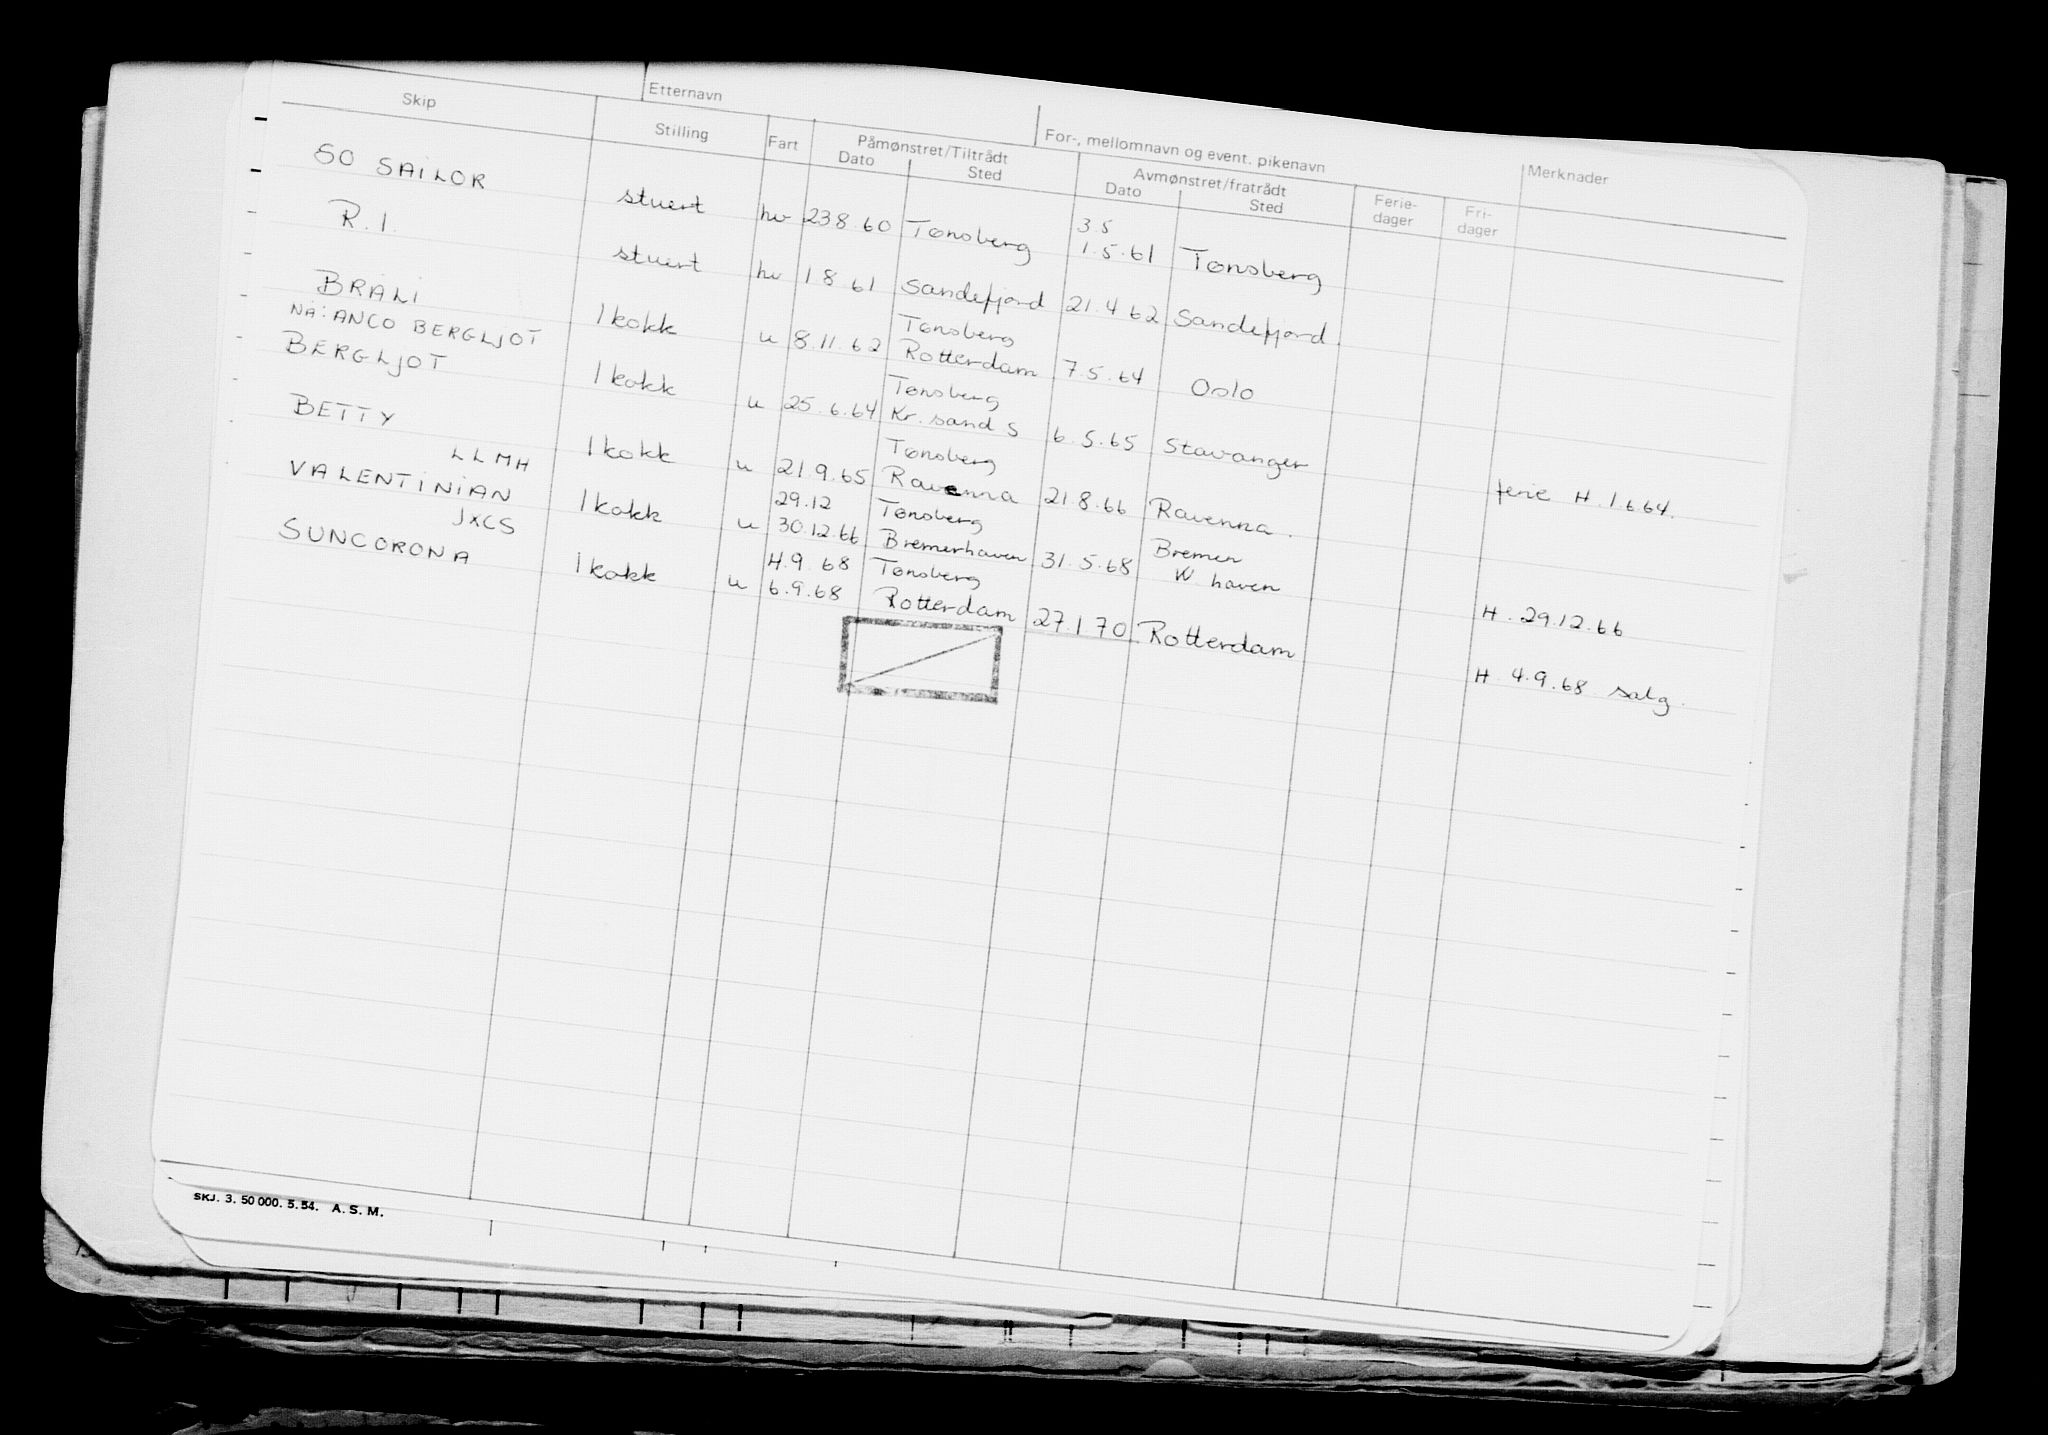 Etternavn
For-, mellomnavn og event. pikenavn
Merknader
Skip Stilling Fart Påmønstret/Tiltrådt Dato Sted Avmønstret/fratrådt Dato Sted Ferie-dager Fri-dager
SO SAILOR stuert hv 23.8.60 Tønsberg 3.5 1.5.61 Tønsberg
R.I. stuert hv 1 8 61 Sandefjord 21.4 62 Sandefjord.
BRALI 1 kokk u 8.11.62 Tønsberg Rotterdam 7.5.64 Oslo
NA: ANCO BERGLJOT
BERGLJOT 1 kokk u 25.6.64 Tønsberg Kr.sand S 6.5.65 Stavanger ferie H.1.6.64.
BETTY 1 kokk u 21.9.65 Tønsberg Ravenna 21.8.66 Ravenna.
LLMH
VALENTINIAN 1 kokk u 29.12 30.12.66 Tønsberg Bremerhaven 31.5.68 Bremen W. haven H. 29.12.66
JXCS
SUNCORONA 1 kokk u 4.9.68 6.9.68 Tønsberg Rotterdam 27.1 70 Rotterdam H 4.9.68 salg.
SKJ. 3. 50 000. 5. 54. A. S. M.